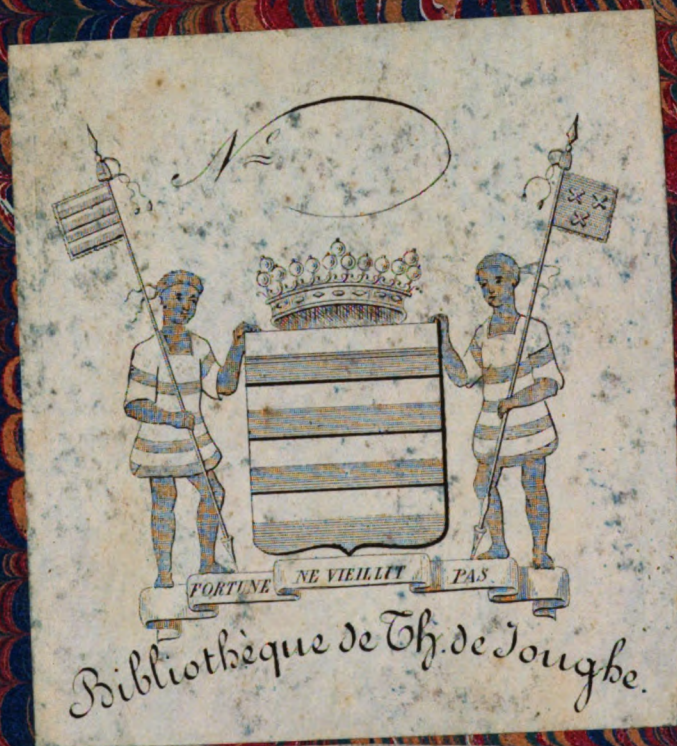 Nº
FORTUNE NE VIEILLIT PAS
Bibliothèque de Th. de Jonghe.